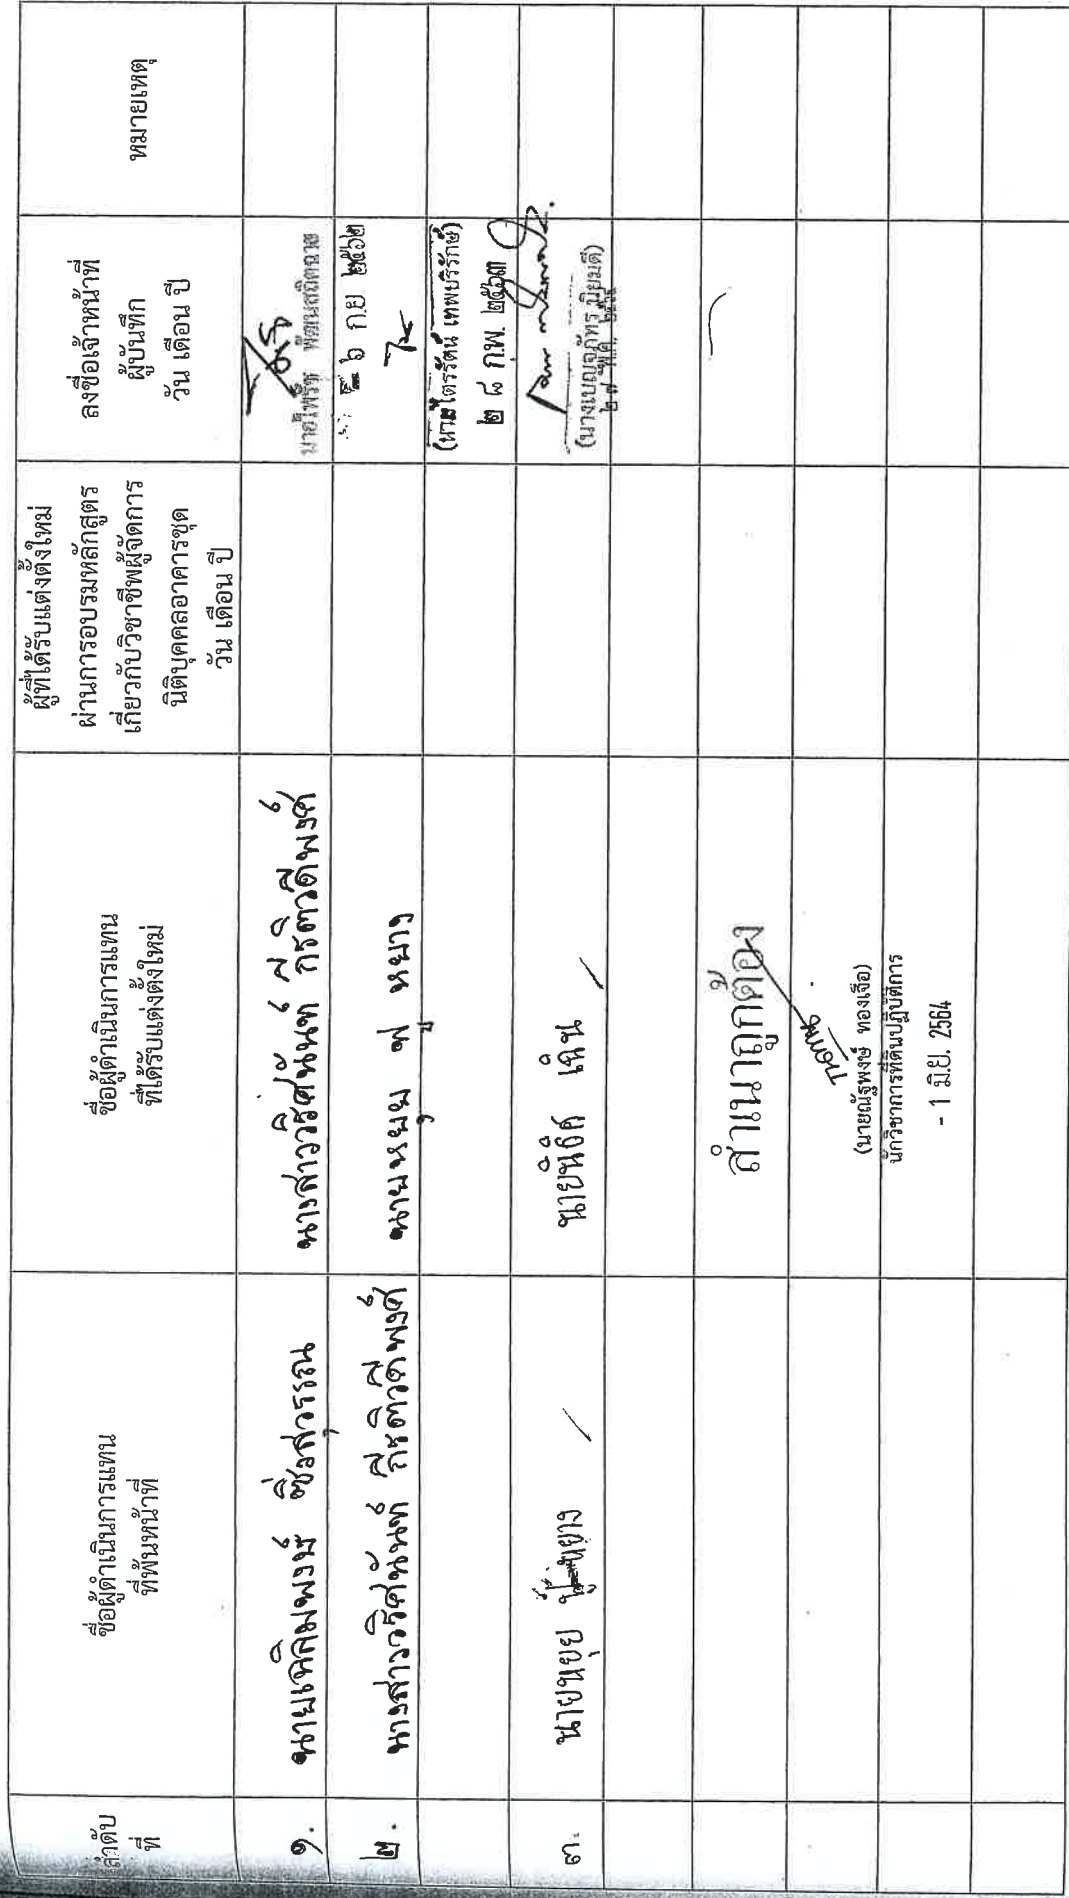 ลำดับ
ที่
ชื่อผู้ดำเนินการแทน
ที่พ้นหน้าที่
ชื่อผู้ดำเนินการแทน
ที่ได้รับแต่งตั้งใหม่
ผู้ที่ได้รับแต่งตั้งใหม่
ผ่านการอบรมหลักสูตร
เกี่ยวกับวิชาชีพผู้จัดการ
นิติบุคคลอาคารชุด
วัน เดือน ปี
ลงชื่อเจ้าหน้าที่
ผู้บันทึก
วัน เดือน ปี
หมายเหตุ
๑.
นายเฉลิมพงษ์
นางสาววริศนันท์ กีรติวดีพงศ์
นายไพรัช
๒.
นางสาววริศนันท์ กีรติวดีพงศ์
นายหยุย ฟู หยาง
๖ ก.ย ๒๕๖๒
(นายไตรรัตน์ เทพบริรักษ์)
๒ ๘ ก.พ. ๒๕๖๓
๓.
นายหยุย ฟู หยาง
นายนิธิศ เฉิน
(นางเบญจภัทร นิยมดี)
สำเนาถูกต้อง
(นายณัฐพงษ์ ทองเจือ)
นักวิชาการที่ดินปฏิบัติการ
- 1 มิ.ย. 2564